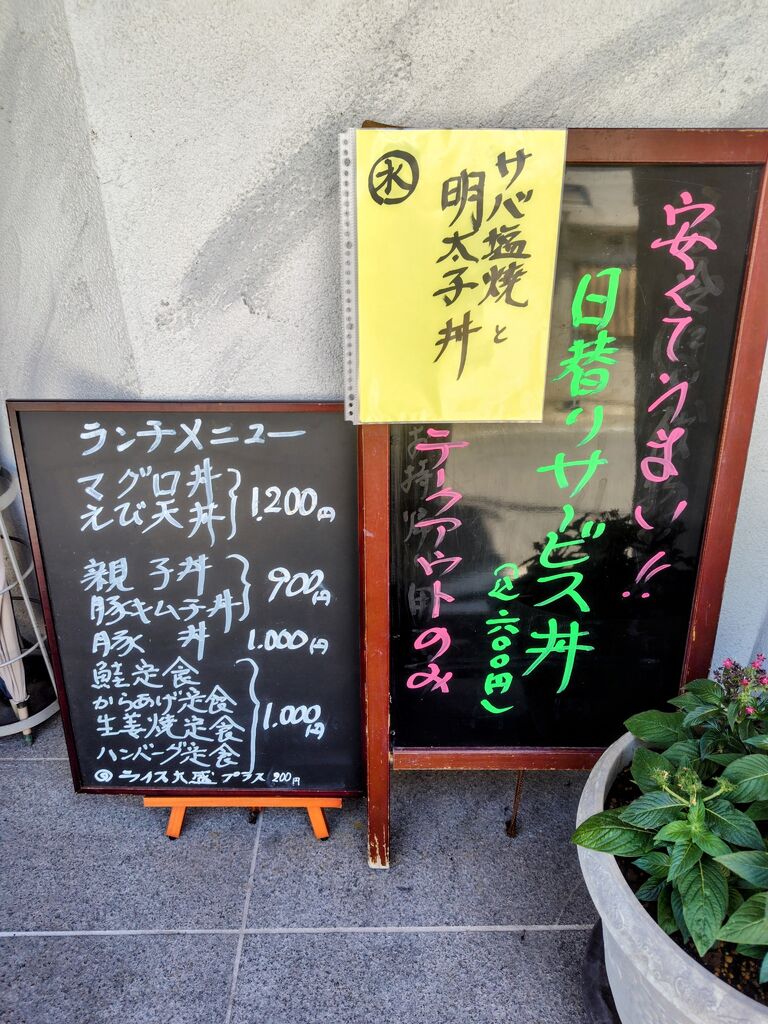 ランチメニュー
マグロ丼
えび天丼
1.200円
親子丼
豚キムチ丼
900円
豚 丼 1.000円
鮭定食
からあげ定食
生姜焼定食
ハンバーグ定食
1.000円
ライス大盛プラス200円
安くてうまい!!
日替りサービス丼
(込六〇〇円)
テークアウトのみ
サバ塩焼と
明太子丼
水